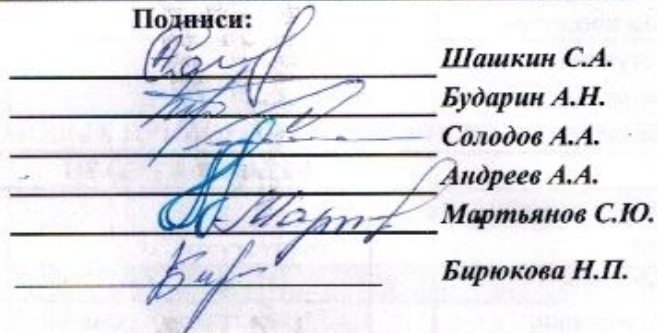 Подписи:
Шашкин С.А.
Бударин А.Н.
Солодов А.А.
Андреев А.А.
Мартьянов С.Ю.
Бирюкова Н.П.